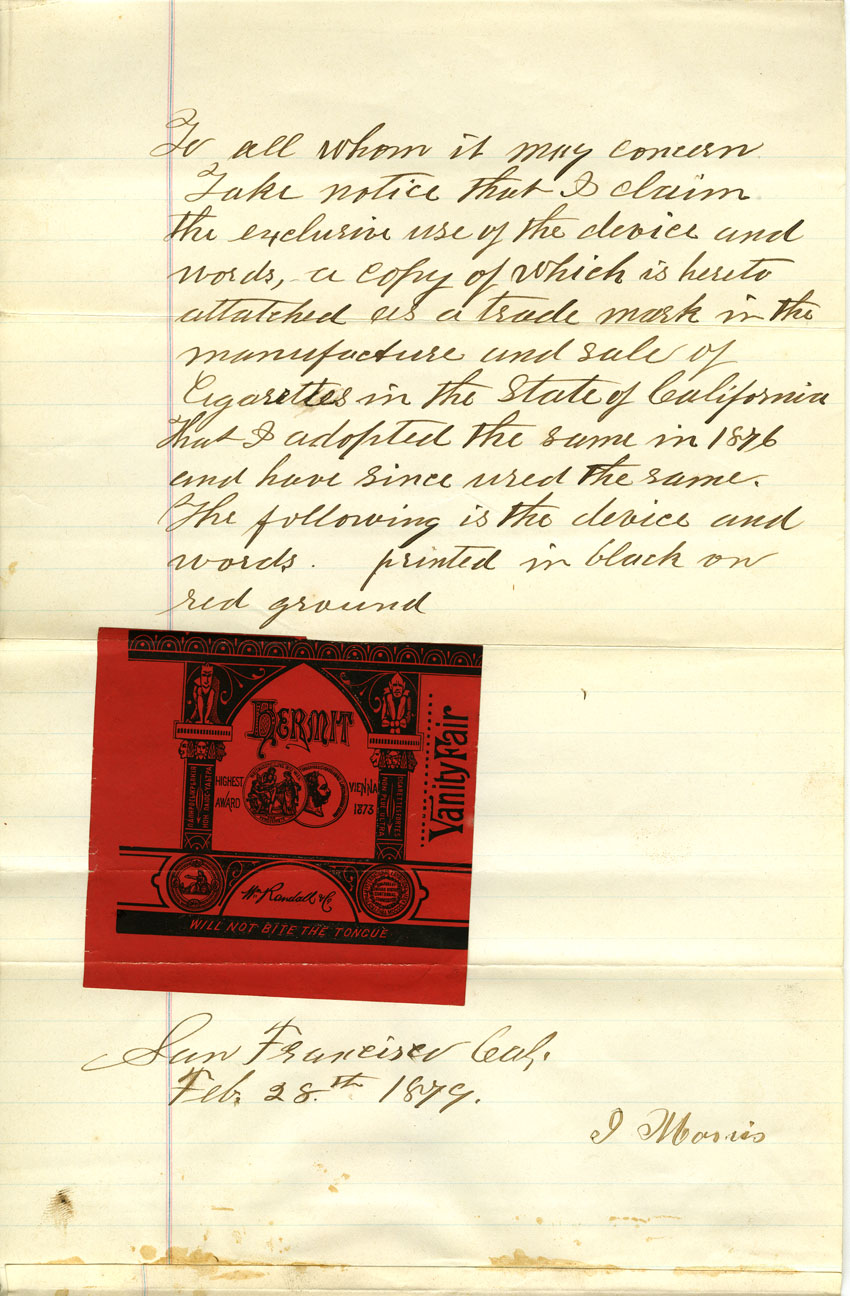 To all whom it may concern
Take notice that I claim
the exclusive use of the device and
words, a copy of which is hereto
attatched as a trade mark in the
manufacture and sale of
Cigarettes in the State of California
that I adopted the same in 1876
and have since used the same.
The following is the device and
words. printed in black on
red ground
HERMIT
HIGHEST
AWARD
VIENNA
1873
NON PLUS ULTRA
Vanity Fair
Wm Randall & Co
WILL NOT BITE THE TONGUE
San Francisco Cal.
Feb. 28.th 1879.
I Morris